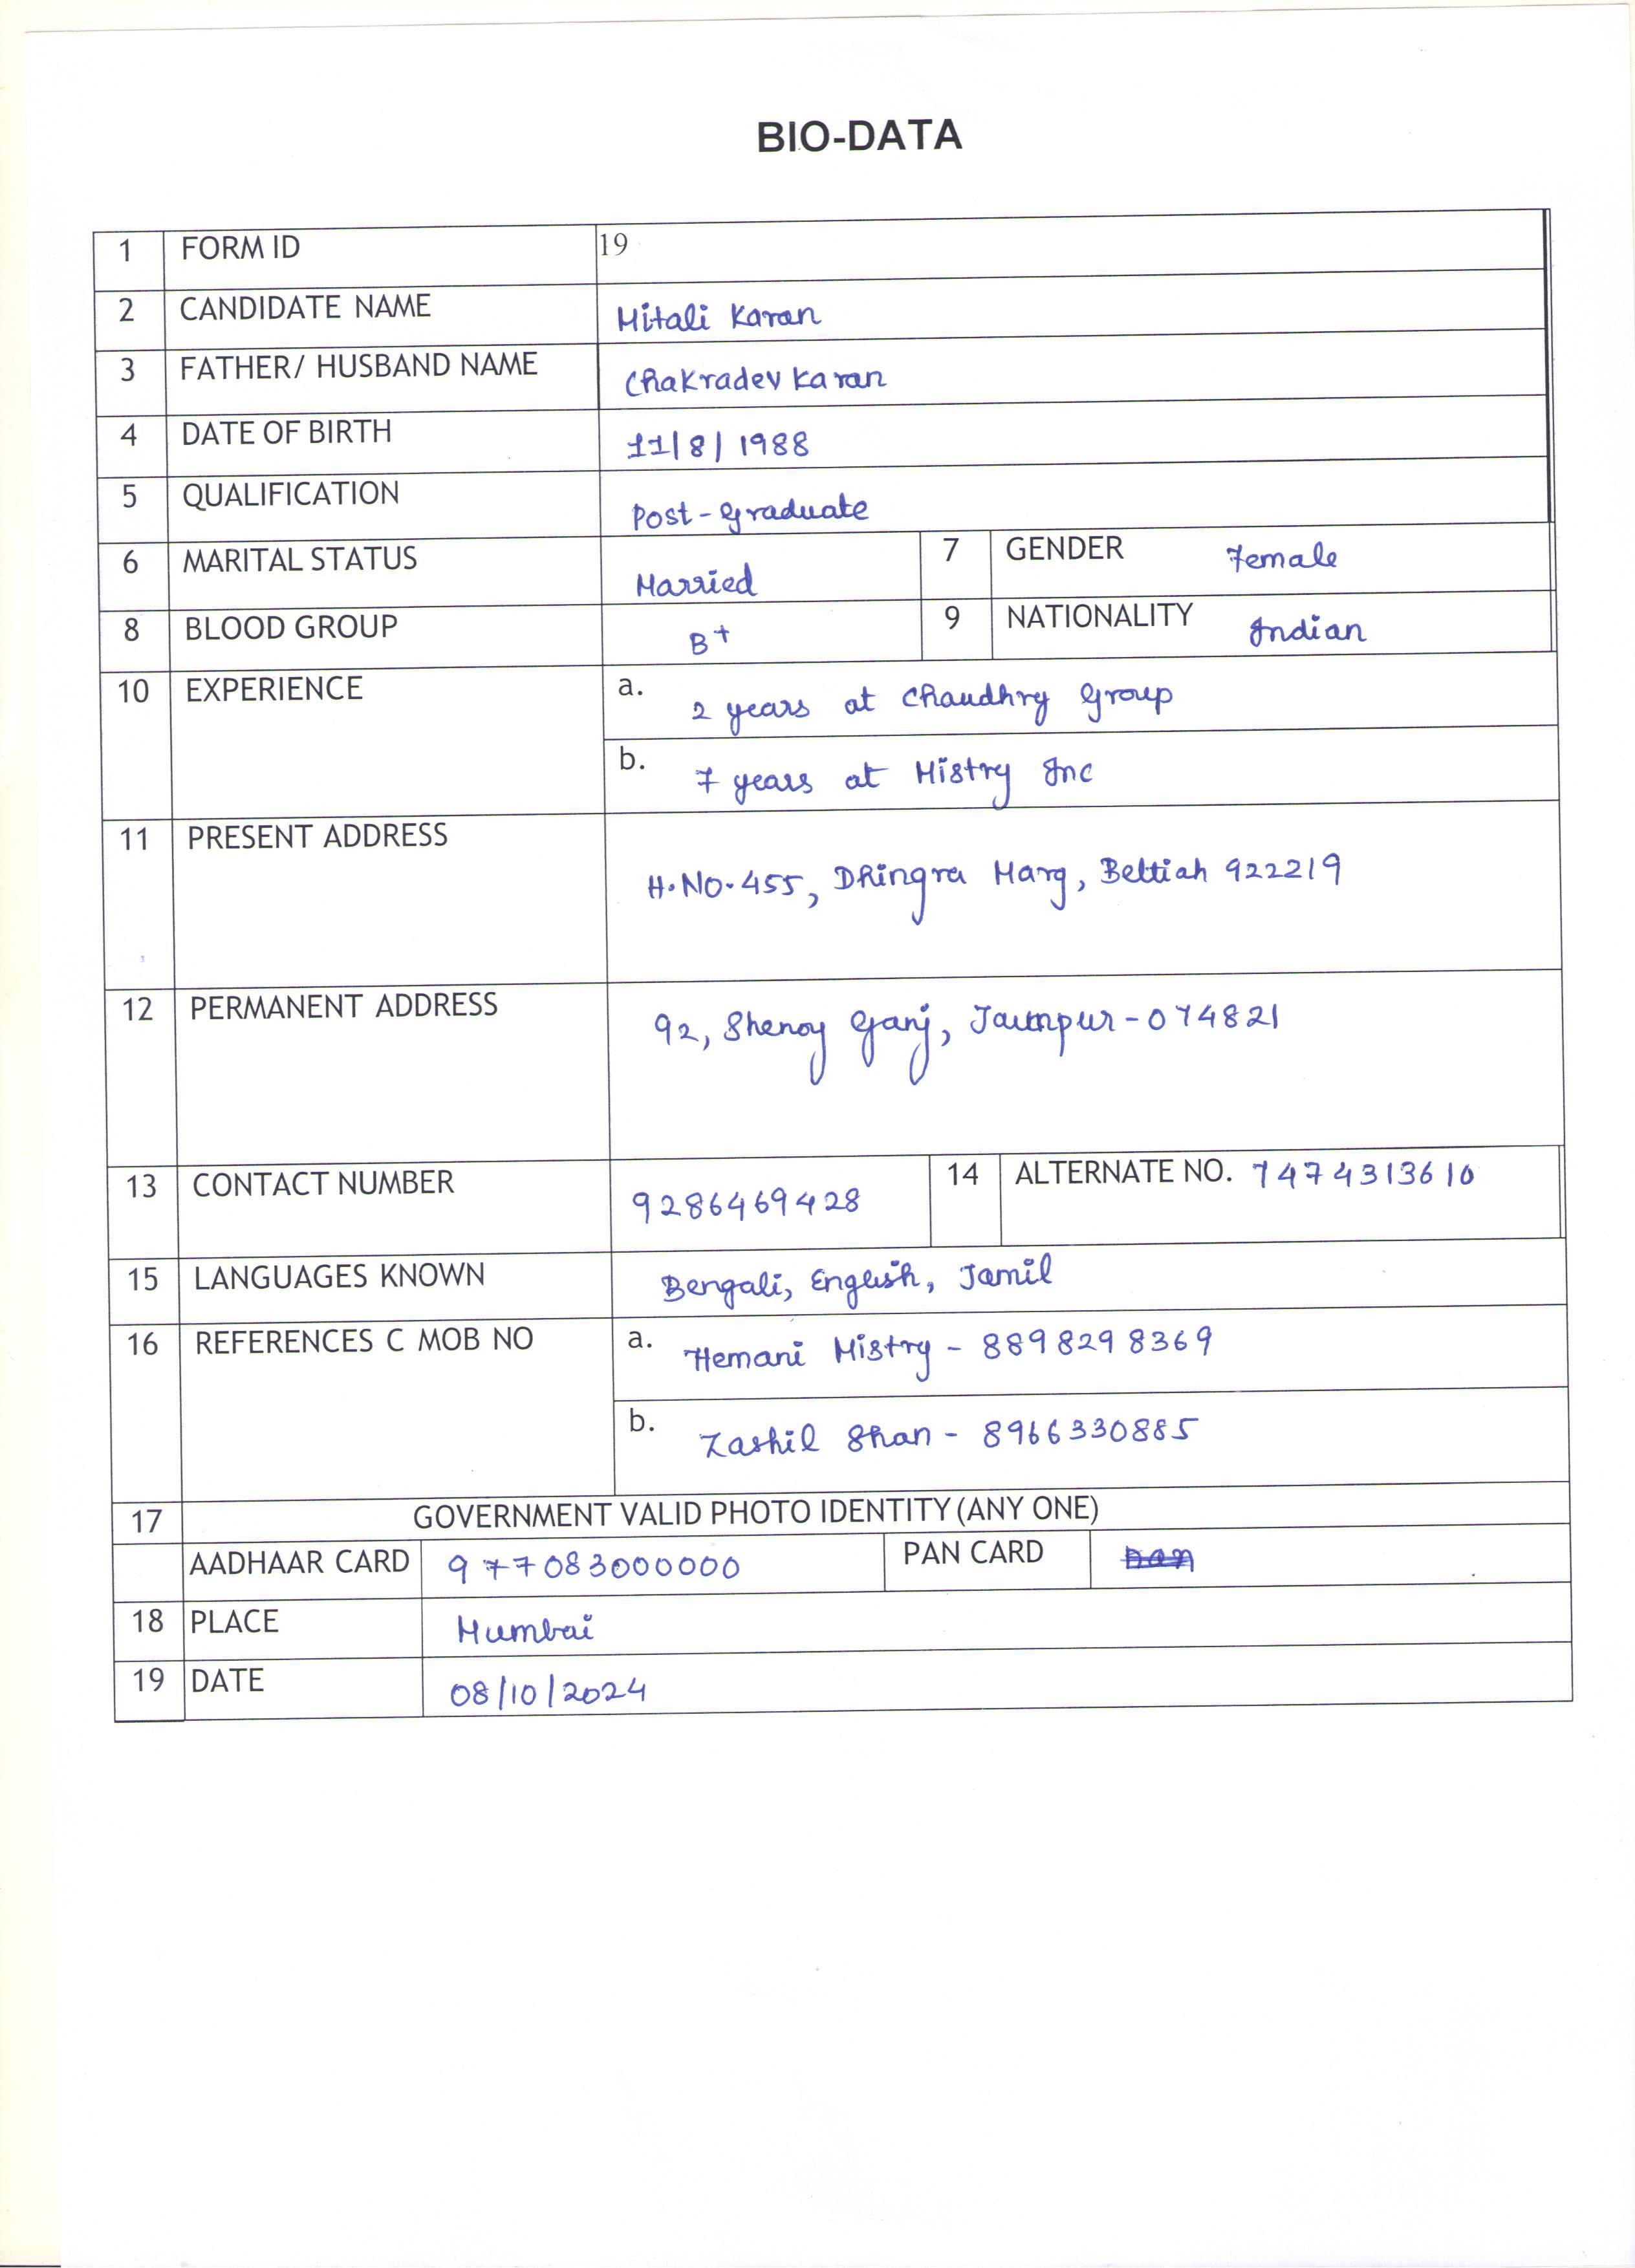 BIO-DATA
1 FORM ID 19
2 CANDIDATE NAME Mitali Karan
3 FATHER/ HUSBAND NAME Chakradev Karan
4 DATE OF BIRTH 11/8/1988
5 QUALIFICATION Post-Graduate
6 MARITAL STATUS Married 7 GENDER Female
8 BLOOD GROUP B+ 9 NATIONALITY Indian
10 EXPERIENCE a. 2 years at Chaudhry Group
b. 7 years at Mistry Inc
11 PRESENT ADDRESS H.NO.455, Dhingra Marg, Bettiah 922219
12 PERMANENT ADDRESS 92, Shenoy Ganj, Jaunpur-074821
13 CONTACT NUMBER 9286469428 14 ALTERNATE NO. 7474313610
15 LANGUAGES KNOWN Bengali, English, Tamil
16 REFERENCES C MOB NO a. Hemani Mistry - 8898298369
b. Zashil Shan - 8966330885
17 GOVERNMENT VALID PHOTO IDENTITY (ANY ONE)
AADHAAR CARD 977083000000 PAN CARD
18 PLACE Mumbai
19 DATE 08/10/2024